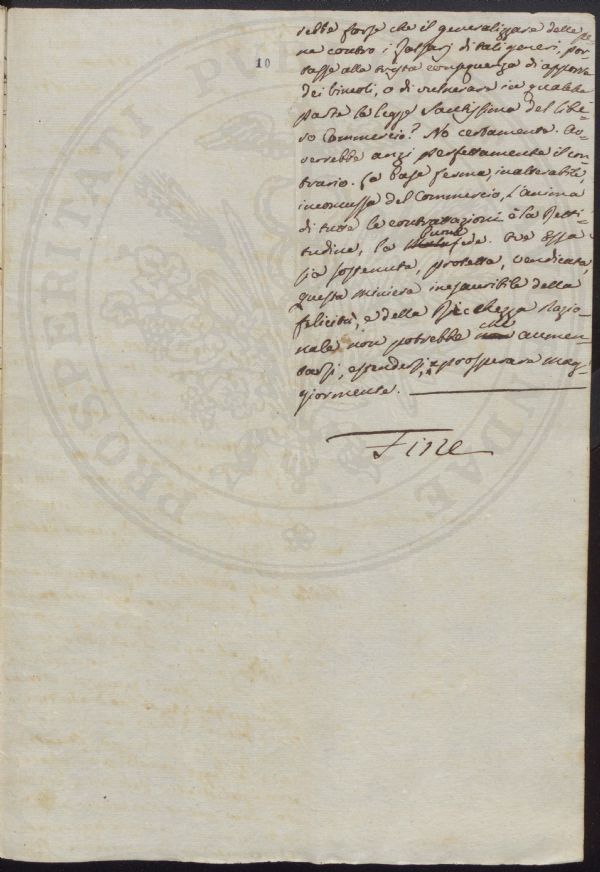 10
rebbe forse che il generalizzare delle pe-
ne contro i falsarj di tali generi, por-
tasse alla trista conseguenza di apporre
dei vincoli, o di vulnerare in qualche
parte la legge Santissima del libe-
ro Commercio? No certamente. Av-
verrebbe anzi perfettamente il con-
trario. La base ferma, inalterabile,
inconcussa del Commercio, l'anima
di tutte le contrattazioni è la Retti-
tudine, la buona fede. Ove Essa
sia sostenuta, protetta, vendicata,
questa miniera inesauribile della
felicità, e della Ricchezza Nazio-
nale non potrebbe che aumen-
tarsi, estendersi, e prosperare mag-
giormente.
Fine
PROSPERITATI PUBLICAE AUGENDAE